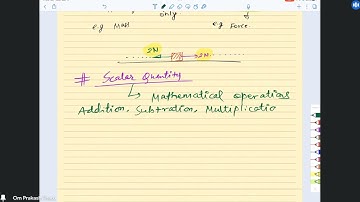 only of
e.g Mass e.g Force
2N 2N
# Scalar Quantity
↳ Mathematical operations
Addition, Subtration, Multiplicatio
Om Prakash